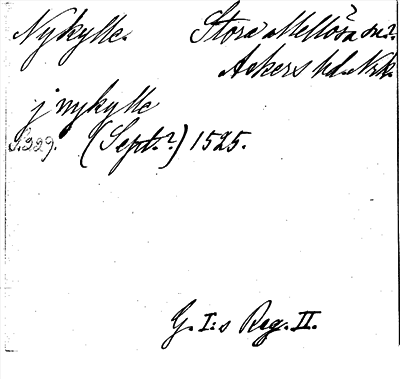 Nykylle. Stora Mellösa sn?
Askers hd. Nrk.
j nykylle
S. 229. (Sept.?) 1525.
G. I:s Reg. II.